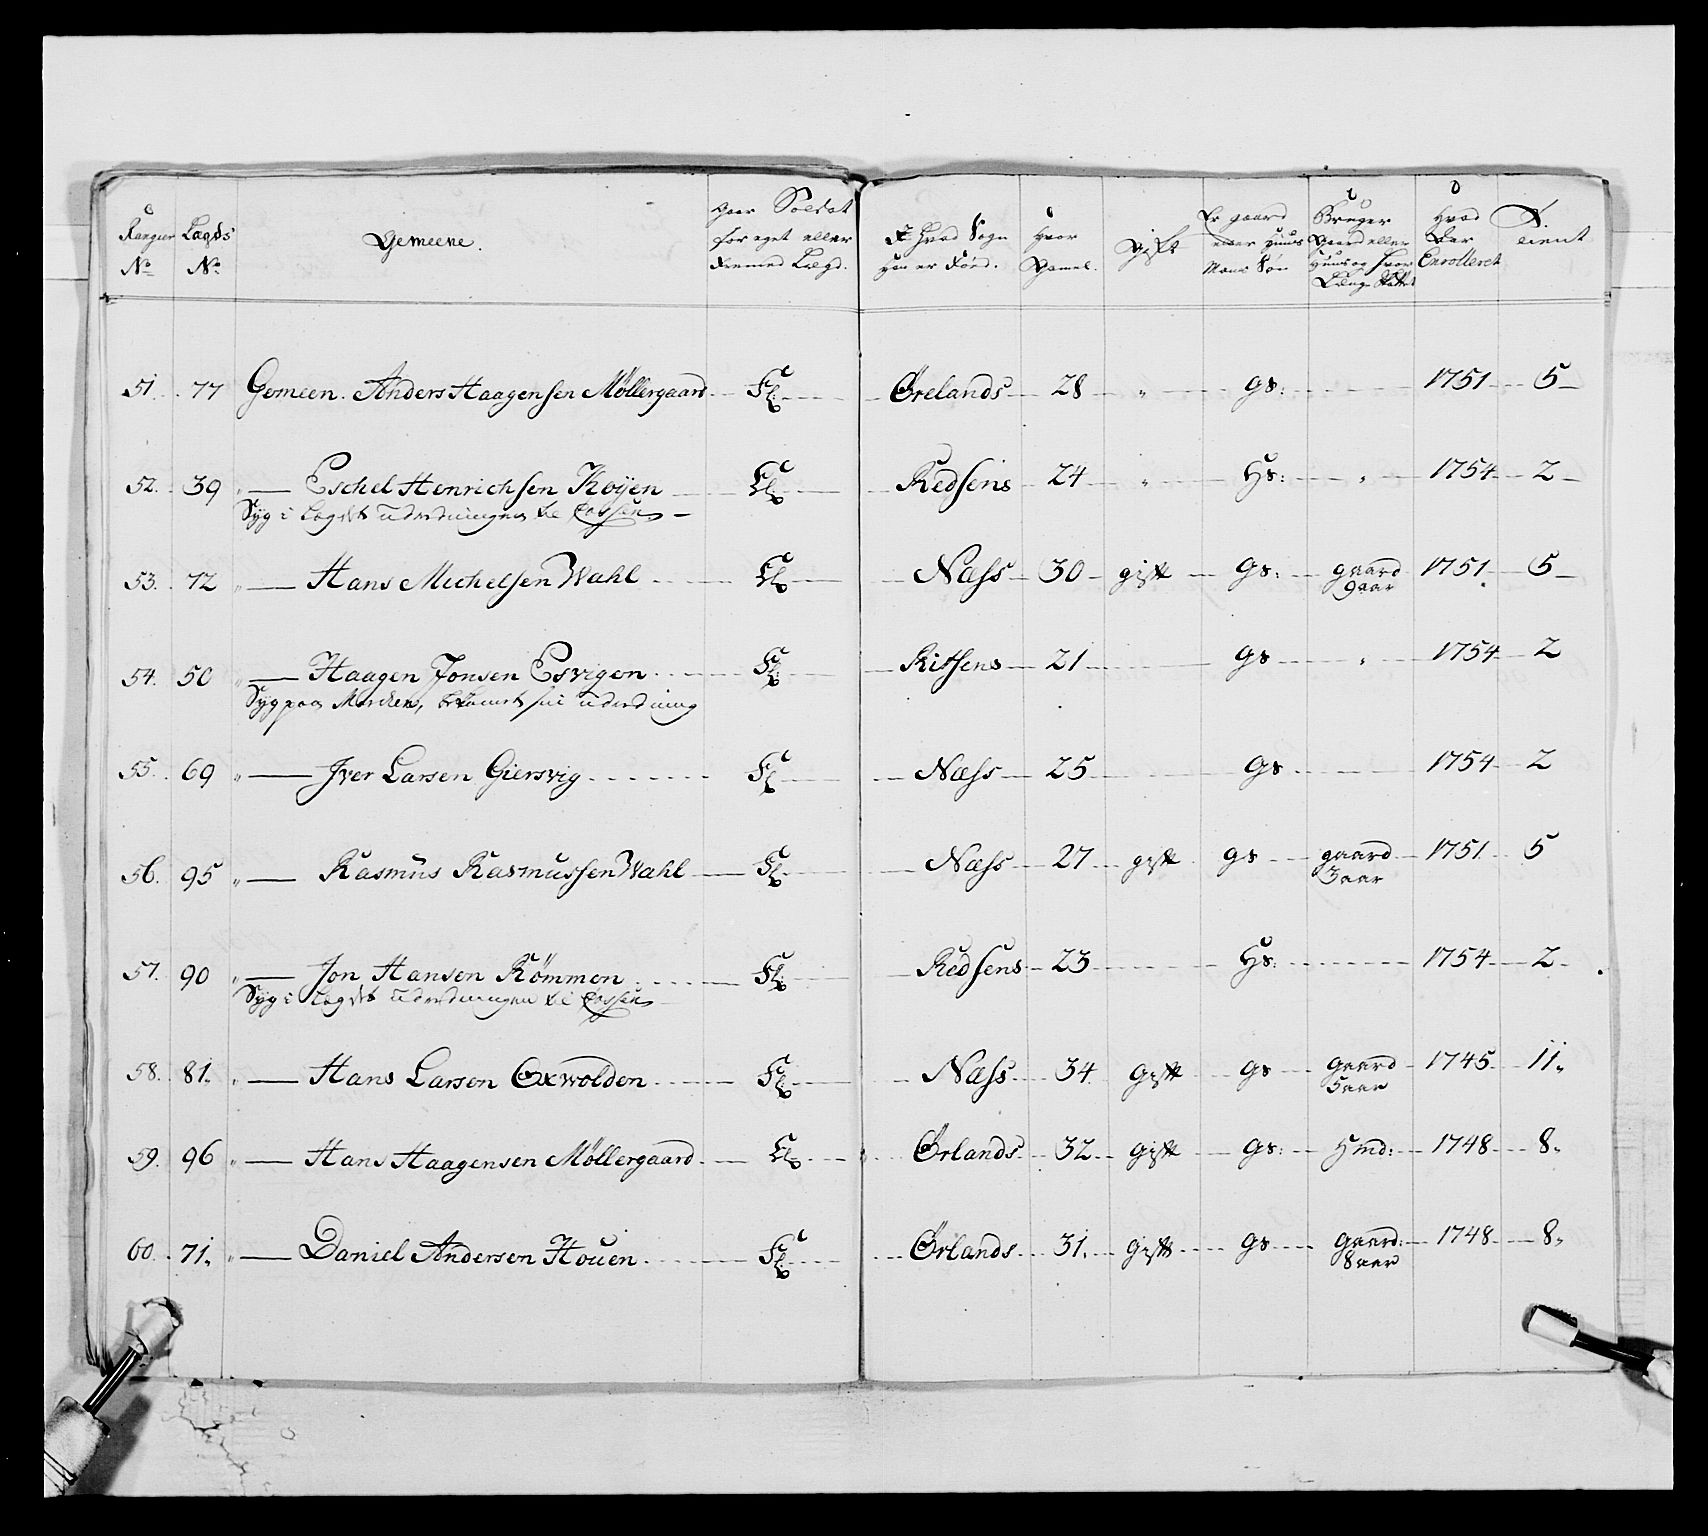 Rangeer No
Lægds No
Gemeene.
Gaar Soldat for eget eller Fremed Lægd.
I Hvad Sogn Han er Fød.
Hvor Gamel.
Gift
Er gaard eller Huus Mans Søn
Bruger Gaard eller Huus og Hvor Længe
Hvad Aar Enrolleret
Tient
51. 77 Gemeen. Anders Haagensen Møllergaard Fl Ørelands 28 " gs: 1751 5
52. 39 " Eschel Henrichsen Koÿen El Redsens 24 " Hs: " 1754 2
Syg i Lægdet udredningen
53. 72 " Hans Michelsen Wahl El Næss 30 gift gs: gaard 9aar 1751 5
54. 50 " Haagen Jonsen Esvigen Fl Ritsens 21 gs " 1754 2
Syg paa Marchen, udredning
55. 69 " Jver Larsen Giersvig Fl Næss 25 gs 1754 2
56. 95 " Rasmus Rasmussen Wahl Fl Næss 27 gift gs gaard 3aar 1751 5
57. 90 " Jon Hansen Römmen Fl Redsens 23 Hs: 1754 2
Syg i Lægdet udredningen
58. 81. " Hans Larsen Oxwolden Fl Næss 34 Gift gs gaard 5aar 1745 11.
59. 96 " Hans Haagensen Møllergaard El Ørlands 32 Gift gs: Hmd: 1748 8.
60. 71. " Daniel Andersen Houen Fl Ørlands 31. Gift gs gaard: 8aar 1748 8.